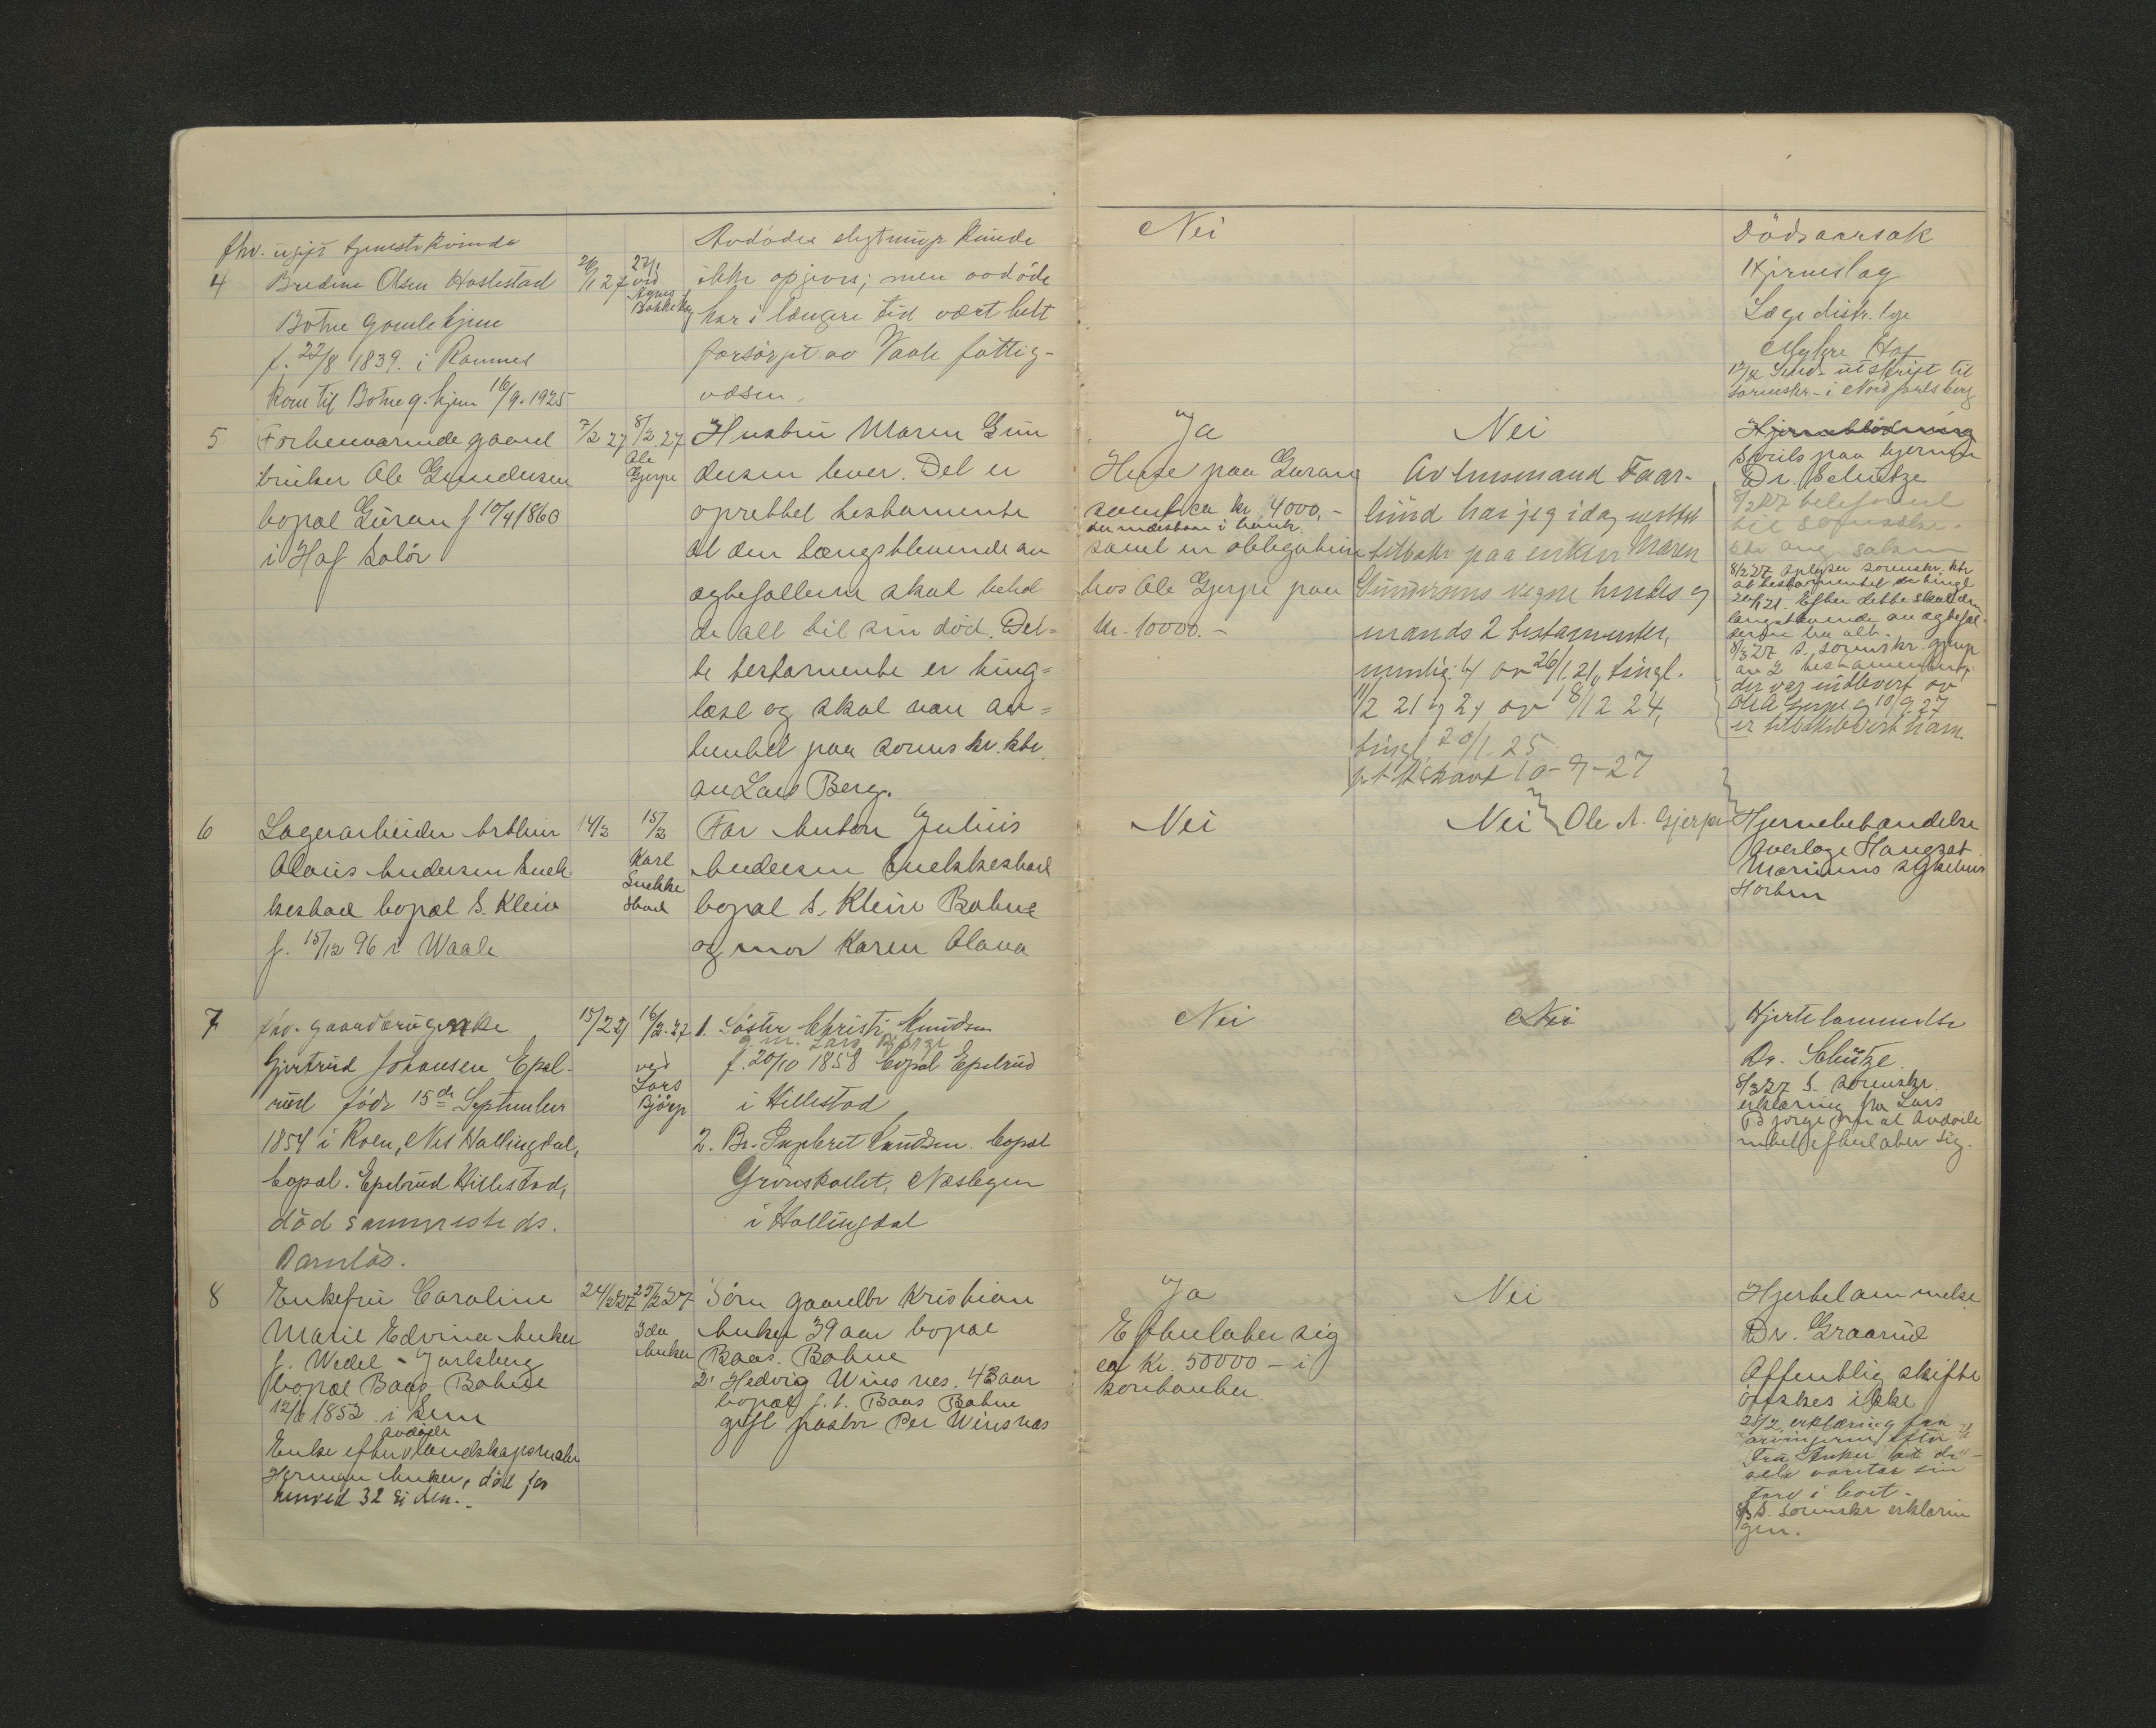 fhv. ugift tjenestekvinde
4 Bredine Olsen Haslestad
Botne gamlehjem
f. 22/8 1839. i Ramnes
kom til Botne g. hjem 16/9. 1925
26/1 27
27/1
ved
Agnes
Bakkeskog
Avdødes slegtninge kunde
ikke opgives; men avdøde
har i længre tid vært helt
forsörget av Vaale fattig-
væsen.
Nei
Dödsaarsak
Hjerneslag
Læge distr. lege
Myhre Hof
Send utskrift til
sorenskr. i Nord Jarlsberg
5 Forhenværende gaard
bruker Ole Gundersen
bopæl Guran f 10/4 1860
i Hof Solör
7/2 27
8/2. 27
Ole
Gjerpe
Hustru Maren Gun
dersen lever. Det er
oprettet testamente
at den længstlevende av
egtefællerne skal behol
de alt til sin död. Det=
te testamente er ting=
læst og skal være av=
hentet paa sorenskr. ktr.
av Lars Berg.
Ja
Huse paa Guran
samt ca kr 4000,-
der indestaar i bank
samt en obligation
hos Ole Gjerpe paa
kr. 10000.-
Nei
Av lensmand Faar-
lund har jeg idag mottat
tilbake paa enken Maren
Gundersens vegne hendes og
mands 2 testamenter,
nemlig: 1) av 26/1. 21, tingl.
11/2 21 og 2) av 18/12 24,
tingl. 20/1. 25
p.t. Skavt 10-9-27
Ole A. Gjerpe
Hjerneblödning
Propils paa hjernen
Dr. Schütze
8/2 27 telefonert
til sorenskr.
ktr ang. saken
8/2 27 oplyser sorenskr. ktr
at testamentet er tingl
20/1 21. Efter dette skal den
længstlevende av egtefæl-
lerne ha alt.
8/3 27 S. sorenskr. gjenp
av 2 testamenter,
der var indlevert av
Ole A Gjerpe og 10/9. 27
er tilbakelevert ham.
6 Lagerarbeider Arthur
Olaus Andersen Snek-
kestad bopæl S. Klein
f. 15/12 96 i Waale
14/2
15/2
Karl
Snekke
stad
Far Anton Julius
Andersen Snekkestad
bopæl S. Klein Botne
og mor Karen Olava
Nei
Nei
Hjernebetændelse
Overlæge Haugset
Marinens Sykehus
Horten
7 fhv. gaardbrugerenke
Gjertrud Johansen Epel-
rud född 15de September
1854 i Roen, Nes Hallingdal,
bopæl. Epelrud Hillestad,
död sammesteds.
Barnlös.
15/2 27
16/2. 27
ved
Lars
Björge
1. Söster Christi Knudsen
g.m. Lars Bjørge
f. 20/10 1858 bopæl Epelrud
i Hillestad
2. Br. Ingebret Knudsen. bopæl
Grönskallet, Nesbyen
i Hallingdal
Nei
Nei
Hjertelammelse
Dr. Schütze.
8/3 27 S. sorenskr.
erklæring fra Lars
Bjorge om at avdöde
intet efterlater sig.
8 Enkefru Caroline
Marie Edvina Anker
f. Wedel-Jarlsberg
bopæl Baas Botne
1852 i Sem
Enke efter avdøde landskapsmaler
Herman Anker, död for
henved 32 si den.
24/2 27
25/2 27
Ida
Anker
1 Sön gaardbr Kristian
Anker 39 aar bopæl
Baas. Botne
2. Hedvig Winsnes. 43 aar
bopæl f. t. Baas Botne
gift pastor Per Winsnes
Ja
Efterlater sig
ca Kr. 50000 - i
kontanter
Nei
Hjertelammelse
Dr. Graarud
Offentlig skifte
önskes ikke
28/2 erklæring fra
arvingerne efter
Fru Anker at de
selv varetar sin
tarv i boet.
8/3 S. sorenskr erklærin
gen.